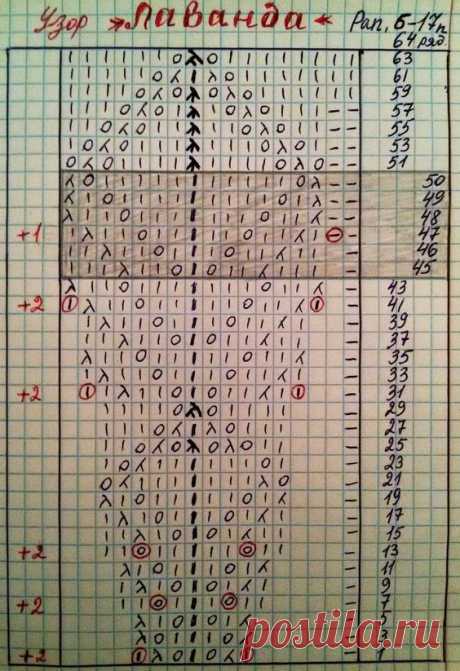 Узор »Лаванда« Рап. 6-17п
64 ряд.
63
61
59
57
55
53
51
50
49
48
+1 47
46
45
43
+2 41
39
37
35
33
+2 31
29
27
25
23
21
19
17
15
+2 13
11
9
+2 7
5
3
+2
postila.ru